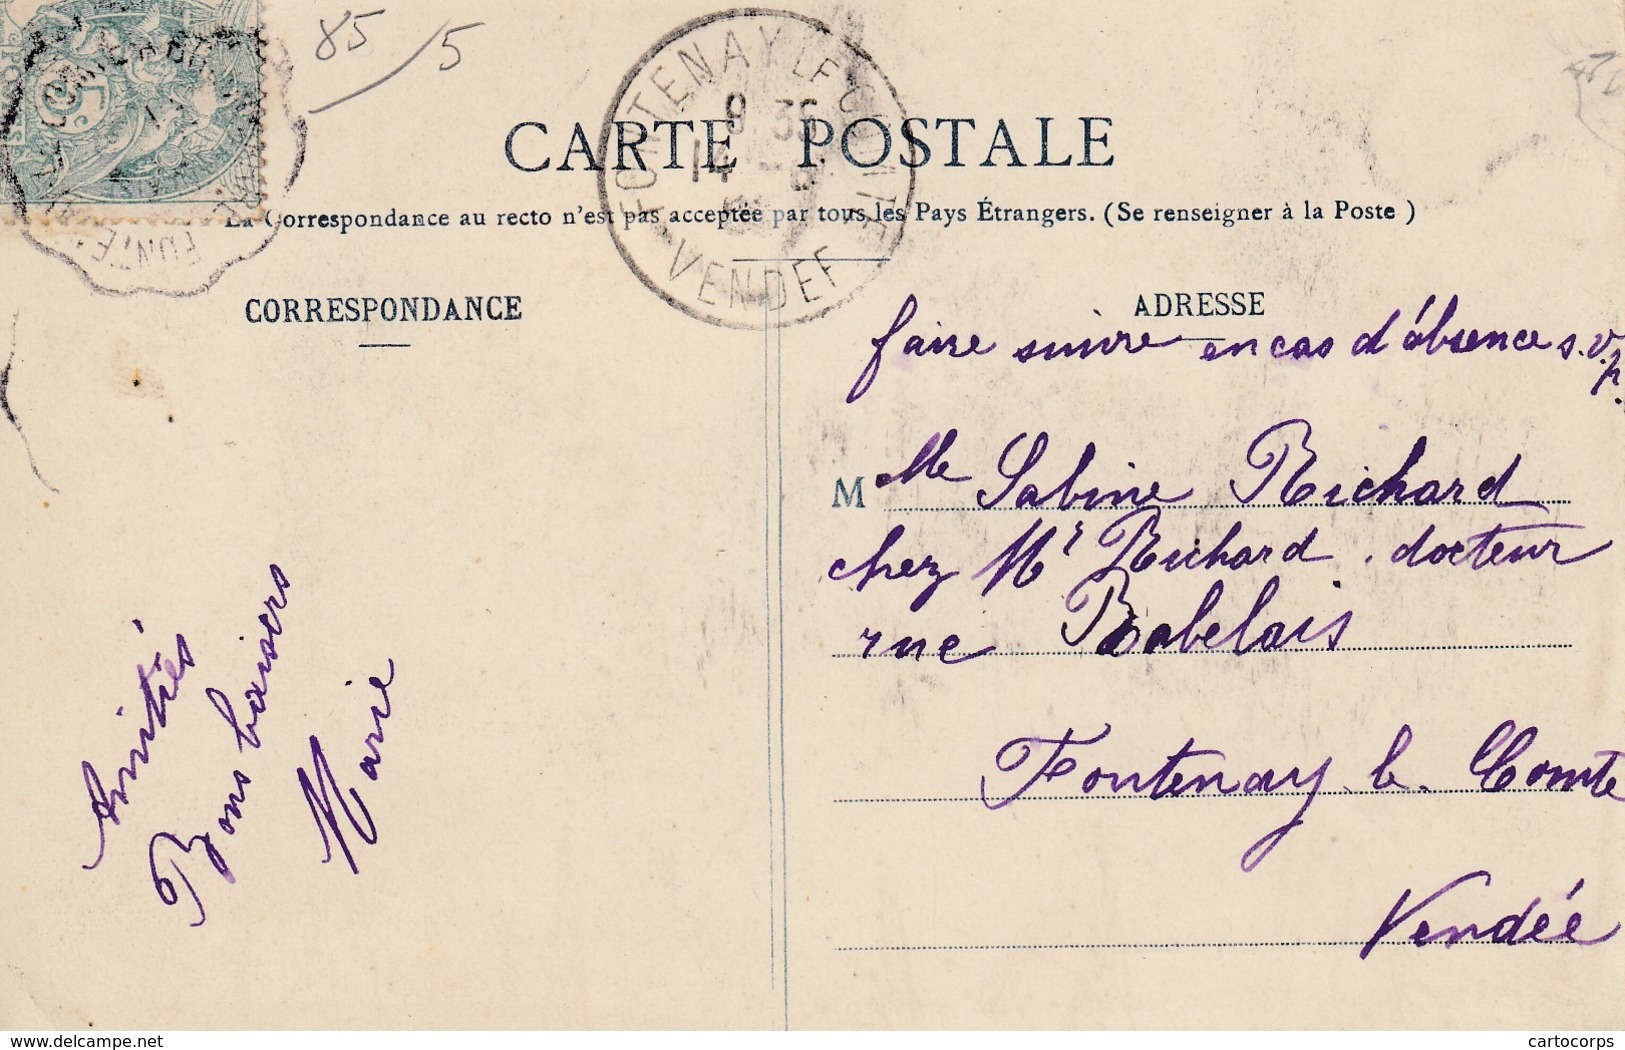 85/5
CARTE POSTALE
La Correspondance au recto n'est pas acceptée par tous les Pays Étrangers. (Se renseigner à la Poste )
FONTENAY LE COMTE
9 35
14
VENDEE
CORRESPONDANCE
ADRESSE
faire suivre en cas d'absence s.v.p.
Mlle Sabine Richard
chez Mr Richard . docteur
rue Rabelais
Fontenay. le. Comte
Vendée
Amitiés
Bons baisers
Marie
www.delcampe.net
cartocorps